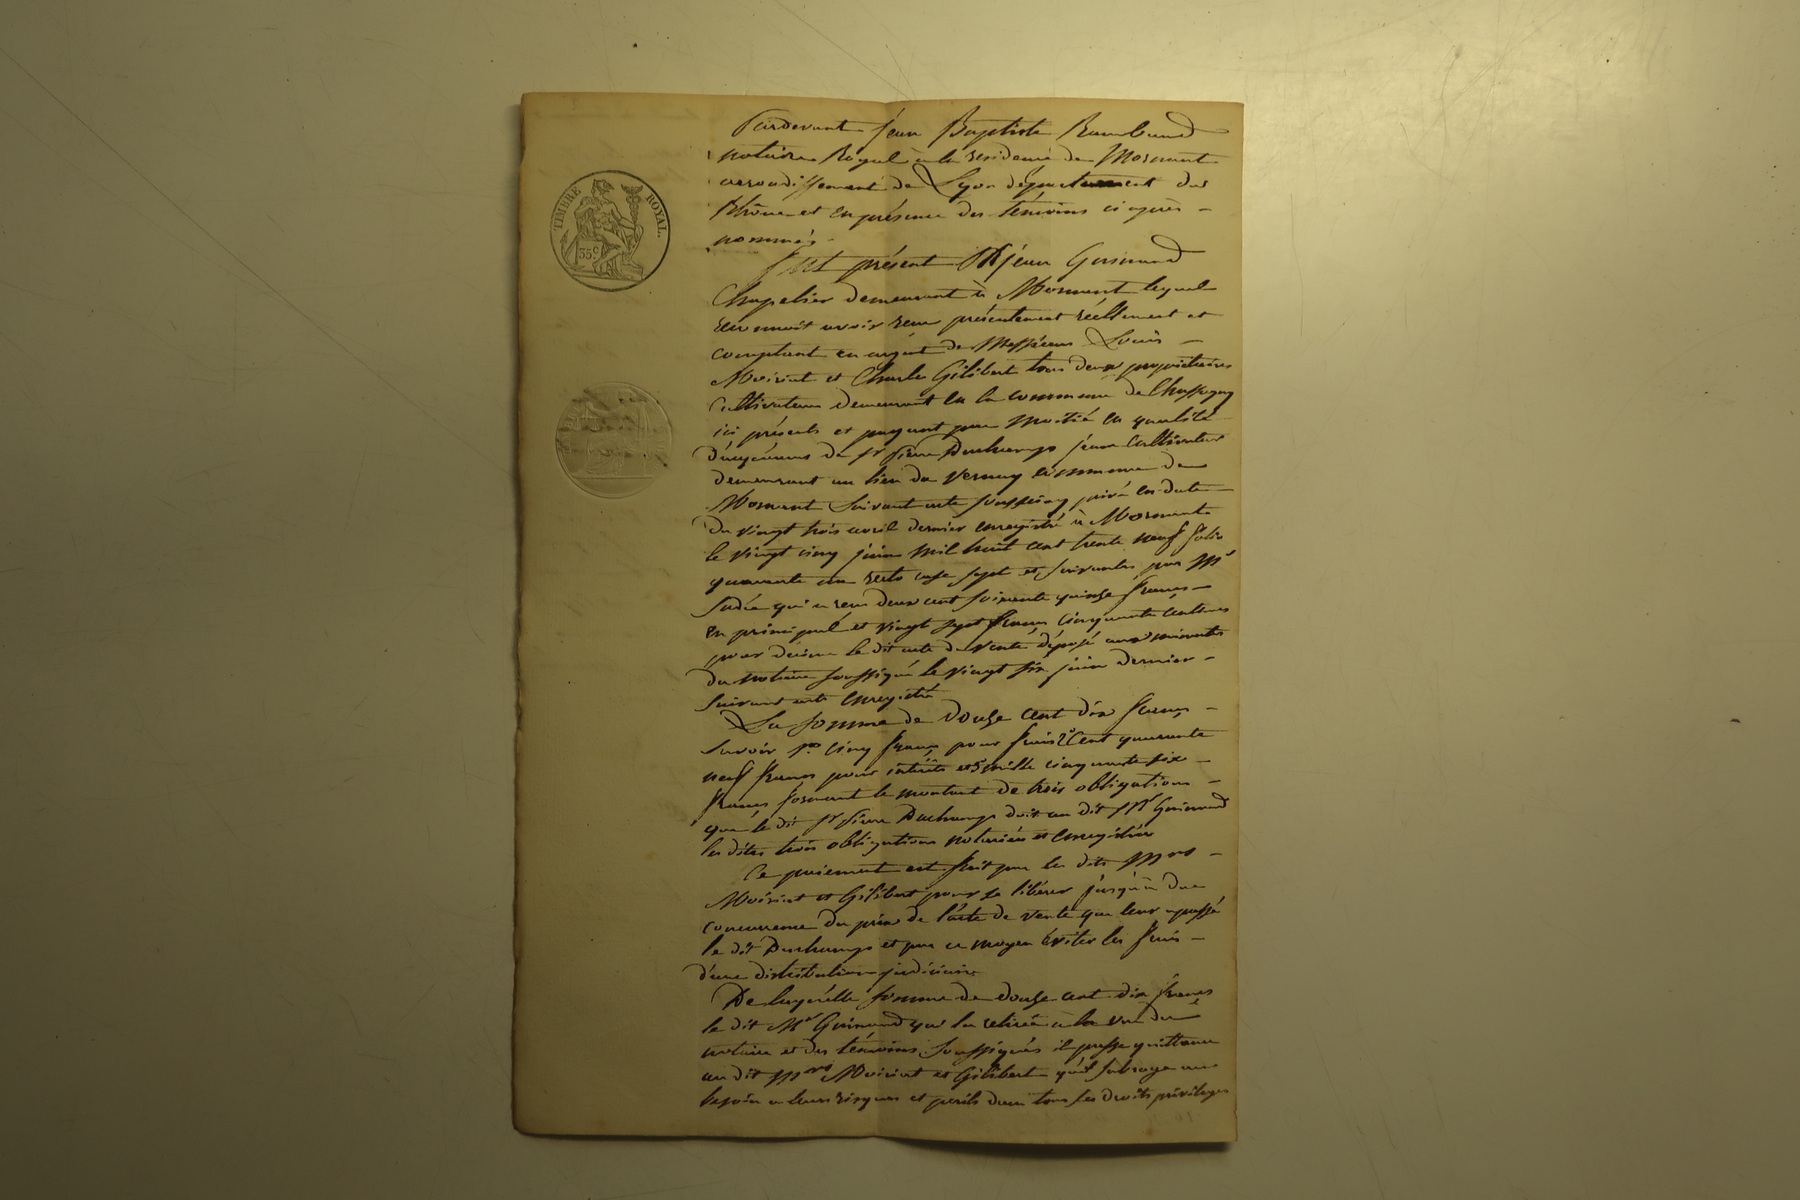 TIMBRE ROYAL.
35c
Pardevant Jean Baptiste Rambaud
notaire Royal à la residence de Mornant
arrondissement de Lyon département du
Rhône et en présence des témoins ci après
nommés.
fut présent Mr jean Guinand
Chapelier demeurant à Mornant lequel
reconnait avoir reçu présentement réellement et
comptant en argent de Messieurs Louis
Moirint et Charle Gilibert tous deux propriétaires
Cultivateurs demeurant en la commune de Chassagny
ici présents et payant par moitié en qualité
d'acquéreurs de Sr pierre Duchamp jeune Cultivateur
demeurant au lieu du Vernay commune de
Mornant Suivant acte sousseing privé en date
du vingt trois avril dernier enregistré à Mornant
le vingt cinq juin mil huit cent trente neuf folio
quarante un recto case sept et suivantes par Mr
qui a reçu deux cent soixante quinze francs
en principal et vingt sept francs cinquante centimes
pour décime le dit acte de vente déposé aux minutes
du notaire soussigné le vingt six juin dernier
suivant acte enregistré
La somme de douze cent dix francs
Savoir 1o cinq francs pour frais 2o Cent quarante
neuf francs pour intérêts et 3o mille cinquante six
francs formant le montant de trois obligations
que le dit Sr pierre Duchamp doit au dit Mr Guinand
les dites trois obligations notariées et enregistrées
Ce paiement est fait par les dits Mrs
Moirint et Gilibert pour se libérer jusqu'à due
concurrence du prix de l'acte de vente que leur a passé
le dit Duchamp et par ce moyen éviter les frais
d'une distribution judiciaire
De laquelle somme de douze cent dix francs
le dit Mr Guinand qui l'a retirée à la vue du
notaire et des témoins soussignés il passe quittance
au dit Mrs Moirint et Gilibert qu'il subroge au
besoin a leurs risques et perils dans tous ses droits privileges